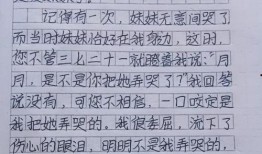 记得有一次，妹妹无意间哭了
而当时妹妹恰好在我旁边，这时，
您不管三七二十一就骂我说："月
月，是不是你把她弄哭了？"我回答
说没有，可您不相信，一口咬定是
我把她弄哭的。我很委屈，流下了
伤心的眼泪，明明不是我弄哭的，